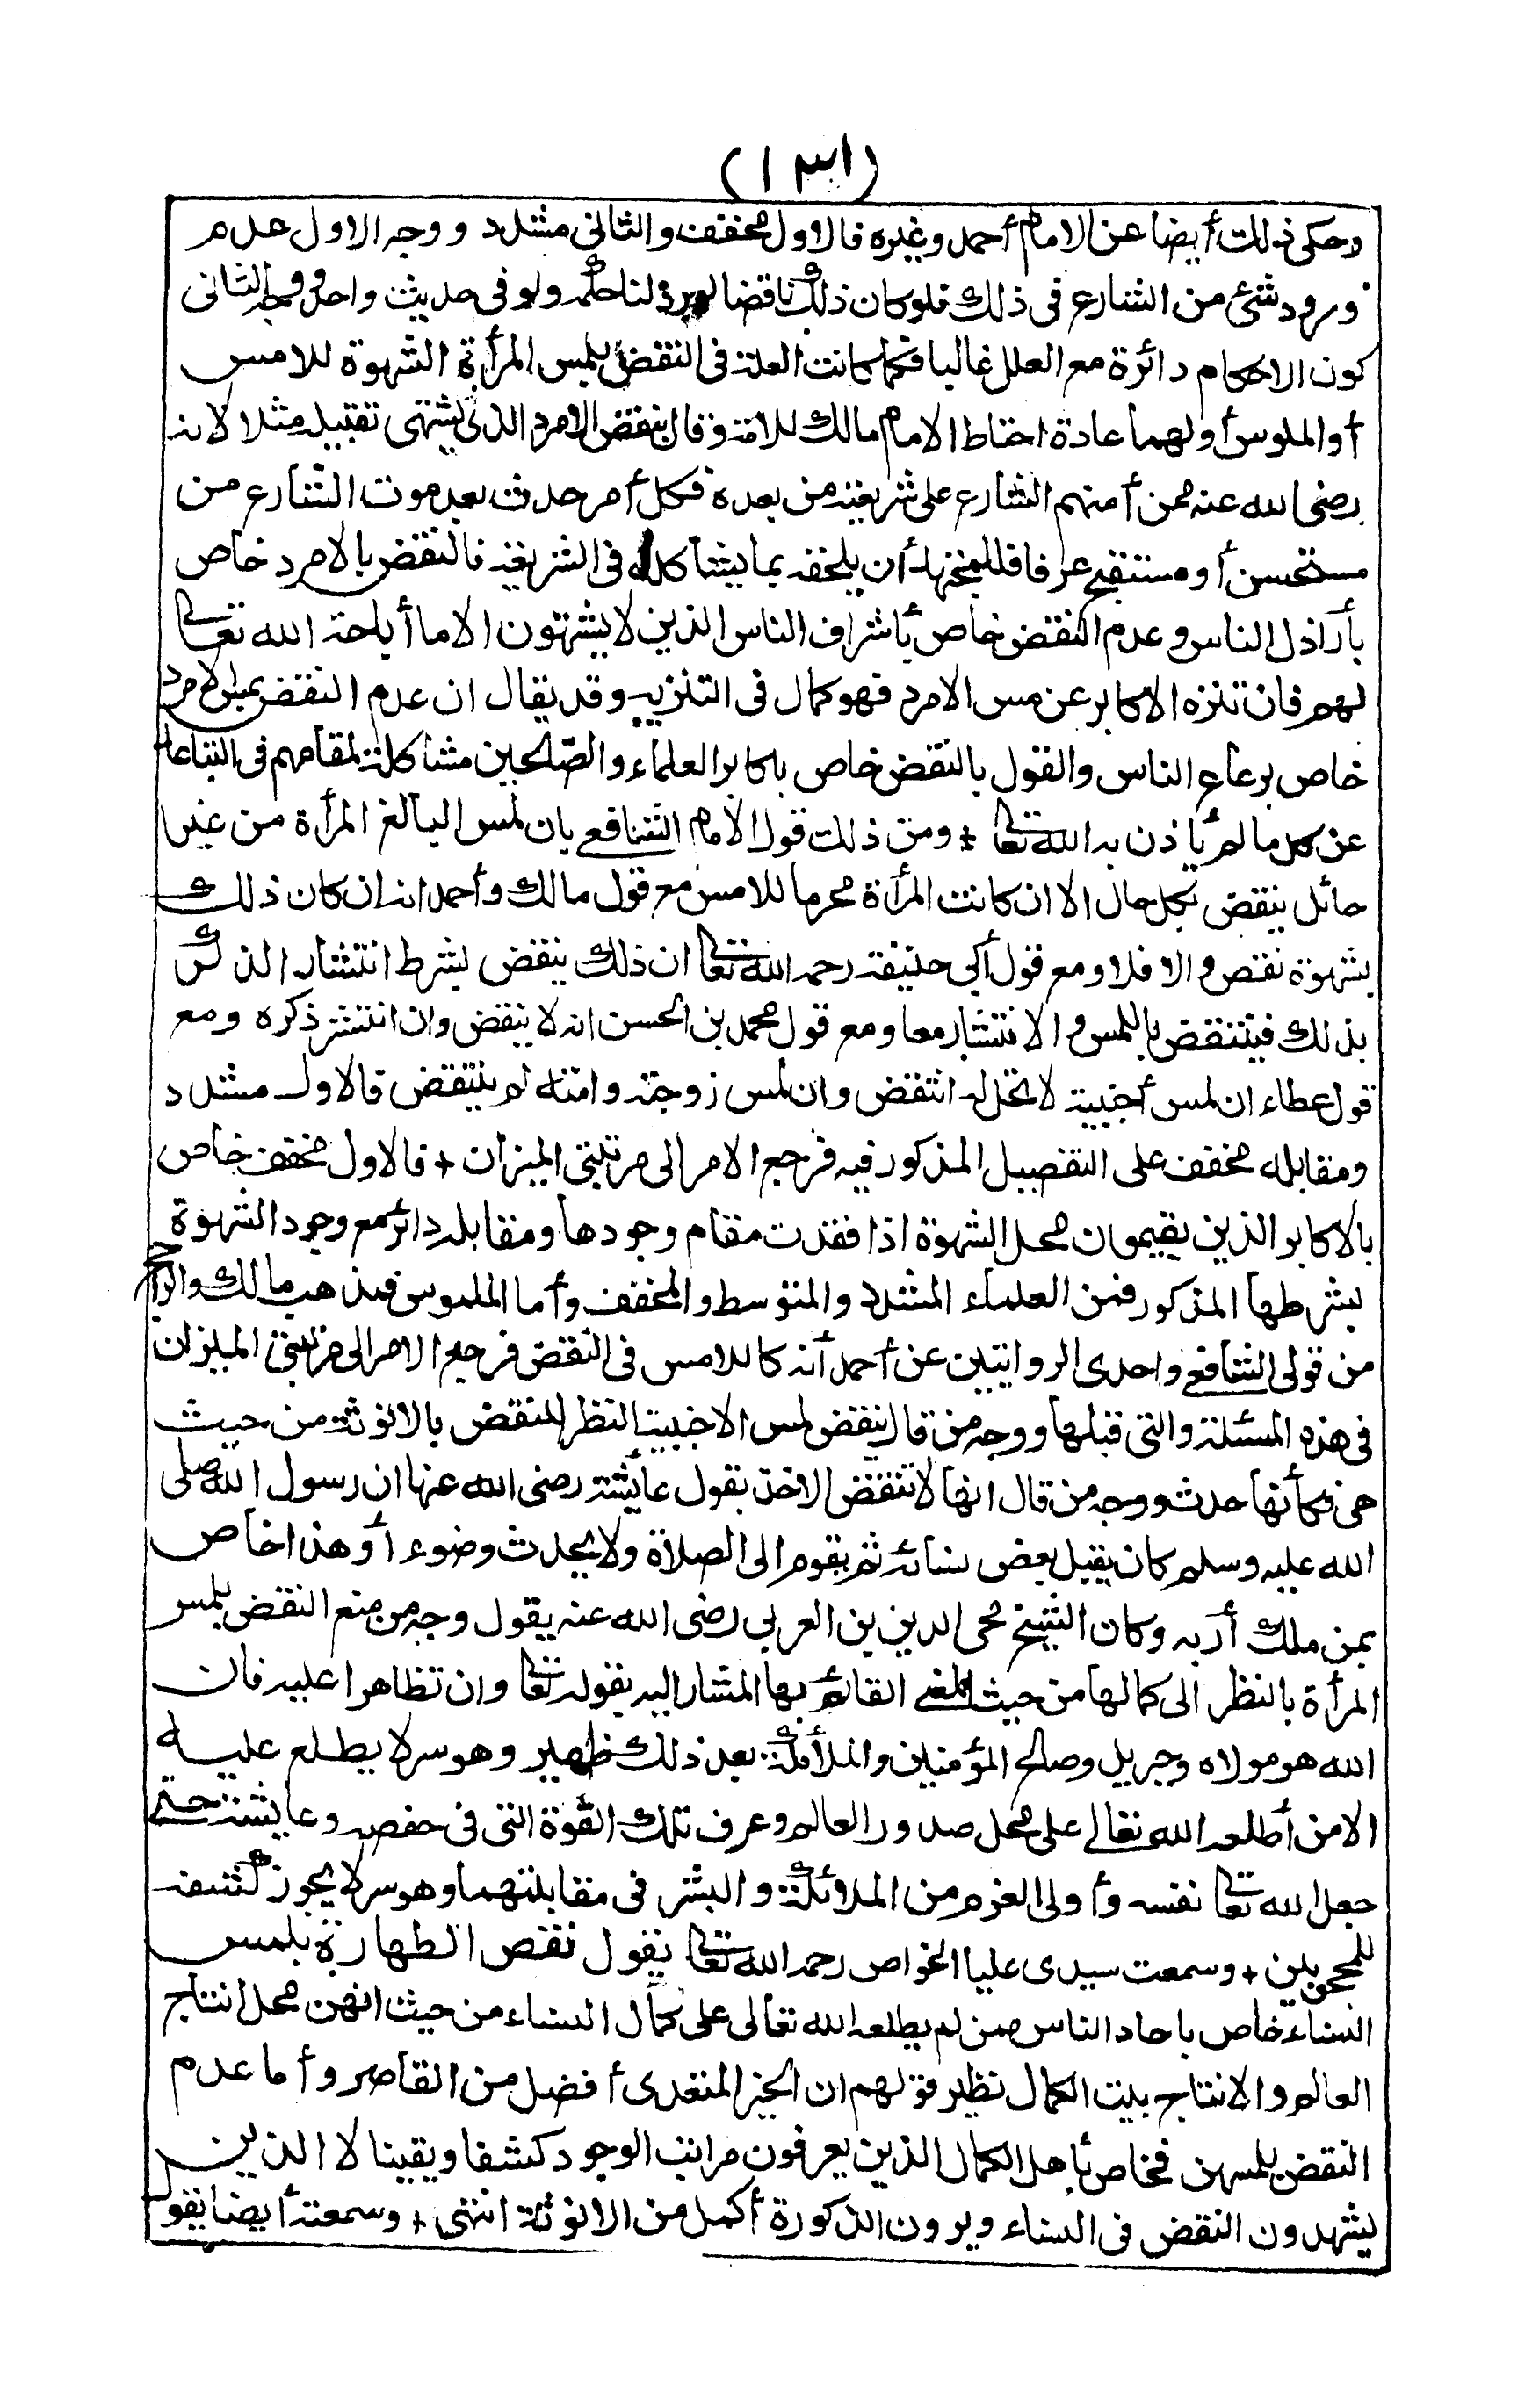 (١٣١)
وحكى ذلك أيضا عن الامام أحمد وغيره فالاول مخفف والثانى مشدد ووجه الاول عدم
ورود شئ من الشارع فى ذلك فلو كان ذلك ناقضا لورد لنا حكمه ولو فى حديث واحد ووجه الثانى
كون الاحكام دائرة مع العلل غالبا فكما كانت العلة فى النقض بلمس المرأة الشهوة للامس
أو الملموس أو لهما عادة احتاط الامام مالك للامة وقال بنقض الامرد الذى يشتهى تقبيله مثلا لانه
رضى الله عنه ممن أمنهم الشارع على شريعته من بعده فكل أمر حدث بعد موت الشارع من
مستحسن أو مستقبح عرفا فللمجتهد أن يلحقه بما يشاكله فى الشريعة فالنقض بالامرد خاص
بأراذل الناس وعدم النقض خاص بأشراف الناس الذين لا يشتهون الا ما أباحه الله تعالى
لهم فان تنزه الاكابر عن مس الامرد فهو كمال فى التنزيه وقد يقال ان عدم النقض بمس الامرد
خاص برعاع الناس والقول بالنقض خاص باكابر العلماء والصالحين مشاكلة لمقامهم فى التباعد
عن كل ما لم يأذن به الله تعالى + ومن ذلك قول الامام الشافعى بان لمس البالغ المرأة من غير
حائل ينقض بكل حال الا ان كانت المرأة محرما للامس مع قول مالك وأحمد انه ان كان ذلك
بشهوة نقض والا فلا ومع قول أبى حنيفة رحمه الله تعالى ان ذلك ينقض بشرط انتشار الذكر
بذلك فينتقض باللمس والانتشار معا ومع قول محمد بن الحسن انه لا ينقض وان انتشر ذكره ومع
قول عطاء ان لمس أجنبية لا تحل له انتقض وان لمس زوجته وامته لم ينتقض فالاول مشدد
ومقابله مخفف على التفصيل المذكور فيه فرجع الامر الى مرتبتى الميزان + فالاول مخفف خاص
بالاكابر الذين يقيمون محل الشهوة اذا فقدت مقام وجودها ومقابله دائر مع وجود الشهوة
بشرطها المذكور فمن العلماء المشدد والمتوسط والمخفف وأما الملموس فمذهب مالك والراجح
من قولى الشافعى واحدى الروايتين عن أحمد أنه كاللامس فى النقض فرجع الامر الى مرتبتى الميزان
فى هذه المسئلة والتى قبلها ووجه من قال بنقض لمس الاجنبية النظر للنقض بالانوثة من حيث
هى فكأنها حدث ووجه من قال انها لا تنقض الاخذ بقول عائشة رضى الله عنها ان رسول الله صلى
الله عليه وسلم كان يقبل بعض نسائه ثم يقوم الى الصلاة ولا يحدث وضوء أو هذا خاص
بمن ملك أربه وكان الشيخ محى الدين بن العربى رضى الله عنه يقول وجه من منع النقض بلمس
المرأة بالنظر الى كمالها من حيث المعنى القائم بها المشار اليه بقوله تعالى وان تظاهرا عليه فان
الله هو مولاه وجبريل وصالح المؤمنين والملائكة بعد ذلك ظهير وهو سر لا يطلع عليه
الا من أطلعه الله تعالى على محل صدور العالم وعرف تلك القوة التى فى حفصه وعايشة حتى
جعل الله تعالى نفسه وأولى العزم من الملائكة والبشر فى مقابلتهما وهو سر لا يجوز كشفه
للمحجوبين + وسمعت سيدى عليا الخواص رحمه الله تعالى يقول نقص الطهارة بلمس
النساء خاص باحاد الناس ممن لم يطلعه الله تعالى على كمال النساء من حيث انهن محل انتاج
العالم والانتاج بيت الكمال نظير قولهم ان الخير المتعدى أفضل من القاصر وأما عدم
النقض بلمسهن فخاص بأهل الكمال الذين يعرفون مراتب الوجود كشفا ويقينا لا الذين
يشهدون النقض فى النساء ويرون الذكورة أكمل من الانوثة انتهى + وسمعته أيضا يقول